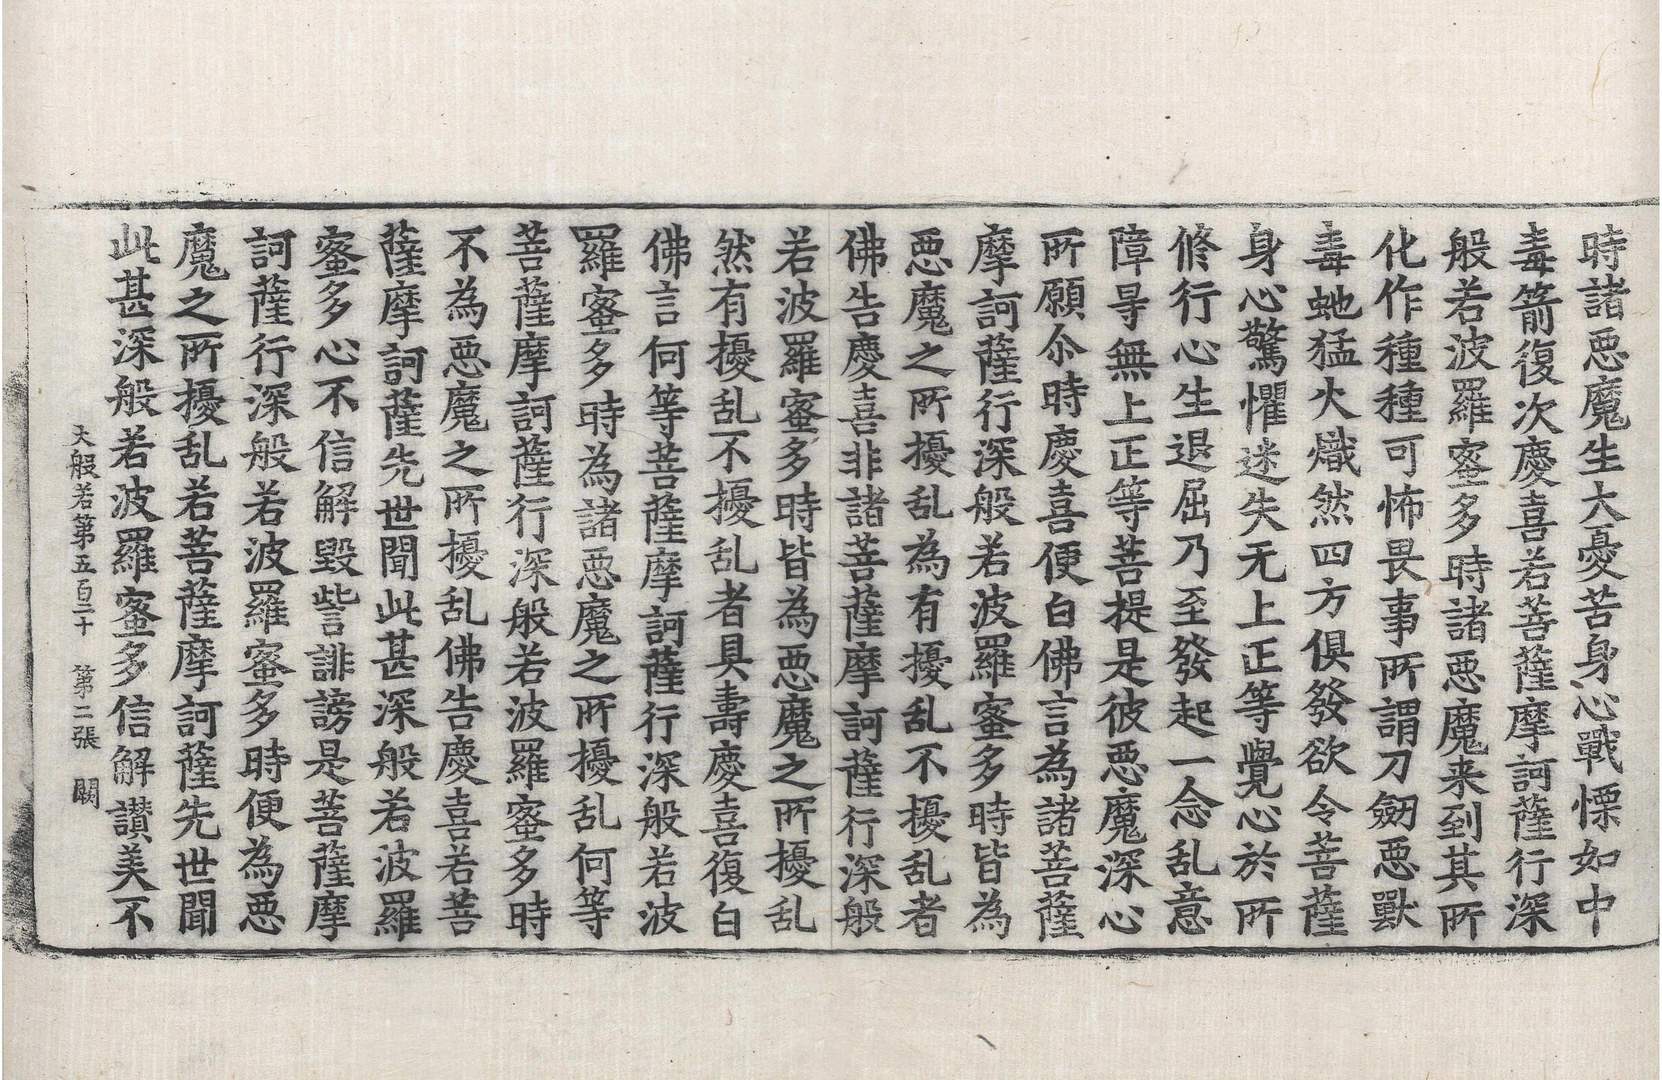 時諸惡魔生大憂苦身心戰慄如中
毒箭復次慶喜若菩薩摩訶薩行深
般若波羅蜜多時諸惡魔来到其所
化作種種可怖畏事所謂刀劒惡獸
毒虵猛火熾然四方俱發欲令菩薩
身心驚懼迷失无上正等覺心於所
修行心生退屈乃至發起一念乱意
障㝵無上正等菩提是彼惡魔深心
所願尒時慶喜便白佛言為諸菩薩
摩訶薩行深般若波羅蜜多時皆為
惡魔之所擾乱為有擾乱不擾乱者
佛告慶喜非諸菩薩摩訶薩行深般
若波羅蜜多時皆為惡魔之所擾乱
然有擾乱不擾乱者具壽慶喜復白
佛言何等菩薩摩訶薩行深般若波
羅蜜多時為諸惡魔之所擾乱何等
菩薩摩訶薩行深般若波羅蜜多時
不為惡魔之所擾乱佛告慶喜若菩
薩摩訶薩先世聞此甚深般若波羅
蜜多心不信解毀訾誹謗是菩薩摩
訶薩行深般若波羅蜜多時便為惡
魔之所擾乱若菩薩摩訶薩先世聞
此甚深般若波羅蜜多信解讃美不
大般若第五百二十 第二張 闕